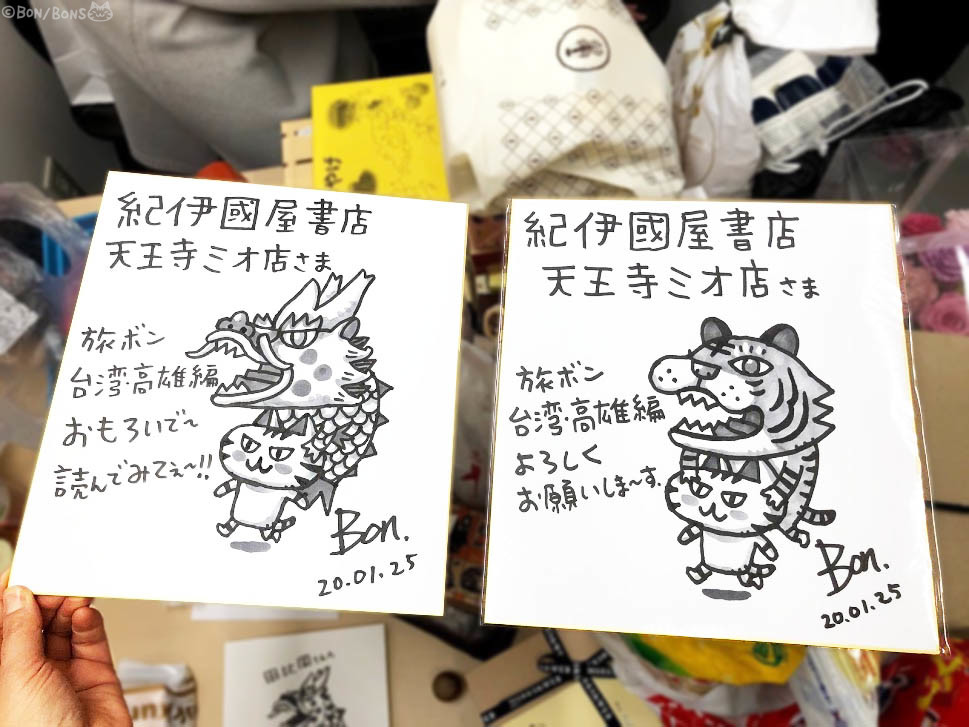 ©BON/BONS
紀伊國屋書店
天王寺ミオ店さま
旅ボン
台湾・高雄編
おもろいで〜
読んでみてぇ〜!!
Bon.
20.01.25
紀伊國屋書店
天王寺ミオ店さま
旅ボン
台湾・高雄編
よろしく
お願いしま〜す.
Bon.
20.01.25